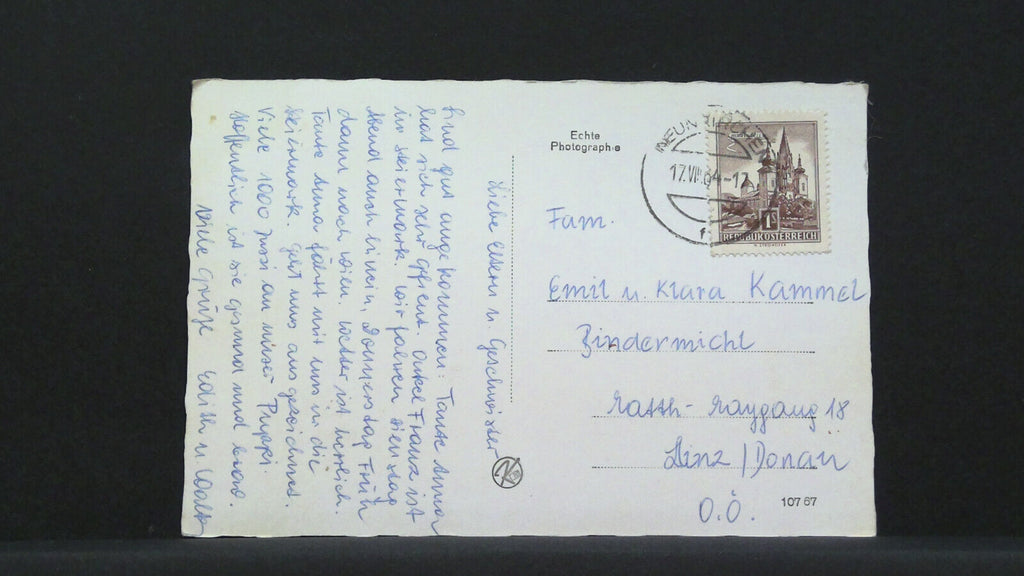 Liebe Eltern u. Geschwister
Sind gut angekommen: Tante Anna
hat sich sehr gefreut. Onkel Franz ist
in Steiermark. Wir fahren Dienstag
Abend auch hinein, Donnerstag Früh
dann nach Wien. Wetter ist herrlich.
Tante Anna fährt mit uns in die
Steiermark. Geht uns ausgezeichnet.
Viele 1000 Bussi an unser Puppei.
Hoffentlich ist sie gesund und brav.
Viele Grüße Edith u. Walter
Echte
Photographie
NEUNKIRCHEN
17.VII.64-17
f
1S
REPUBLIK ÖSTERREICH
Fam.
Emil u. Klara Kammel
Bindermichl
18
Linz / Donau
O.Ö.
107 67